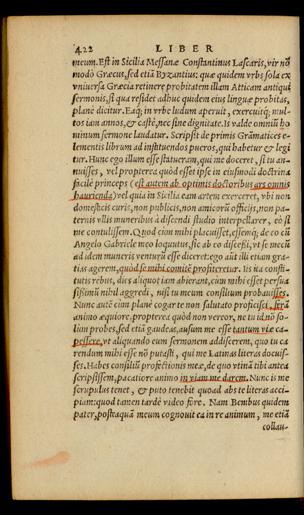 422 LIBER
meum. Est in Sicilia Messanæ Constantinus Lascaris, vir nõ
modò Græcus, sed etiã Byzantius: quæ quidem vrbs sola ex
vniuersa Græcia retinere probitatem illam Atticam antiqui
sermonis, si qua residet adhuc quidem eius linguæ probitas,
planè dicitur. Eaq; in vrbe ludum aperuit, exercuitq; mul-
tos iam annos, & castè, nec sine dignitate. Is valde omniũ ho
minum sermone laudatur. Scripsit de primis Grãmatices e-
lementis librum ad instituendos pueros, qui habetur & legi
tur. Hunc ego illum esse statueram, qui me doceret, si tu an-
nuisses, vel propterea quòd esset ipse in eiusmodi doctrina
facilè princeps (est autem ab optimis doctoribus ars omnis
haurienda) vel quia in Sicilia eam artem exerceret, vbi non
domesticis curis, non publicis, non amicorũ officijs, non pa-
ternis vllis muneribus à discendi studio interpellarer, eò si
me contulissem. Quod cùm mihi placuisset, essemq; de eo cũ
Angelo Gabriele meo loquutus, sic ab eo discessi, vt se mecũ
ad idem muneris venturũ esse diceret: ego aũt illi etiam gra-
tias agerem, quòd se mihi comitẽ profiteretur. Iis ita consti-
tutis rebus, dies aliquot iam abierant, cùm mihi esset persua
sissimũ nihil aggredi, nisi tu meum consilium probauisses.
Nunc autẽ cùm planè cogar te non salutato proficisci, ferã
animo æquiore, propterea quòd non vereor, ne tu id nõ so-
lùm probes, sed etiã gaudeas, ausum me esse tantum viæ ca-
pessere, vt aliquando eum sermonem addiscerem, quo tu ca
rendum mihi esse nõ putasti, qui me Latinas literas docuis-
ses. Habes consiliũ profectionis meæ, de quo vtinã tibi antea
scripsissem, pacatiore animo in viam me darem. Nunc is me
scrupulus tenet, & puto tenebit quoad abs te literas acci-
piam: quod tamen tardè video fore. Nam Bembus quidem
pater, postquã meum cognouit ea in re animum, me etiã
collau-